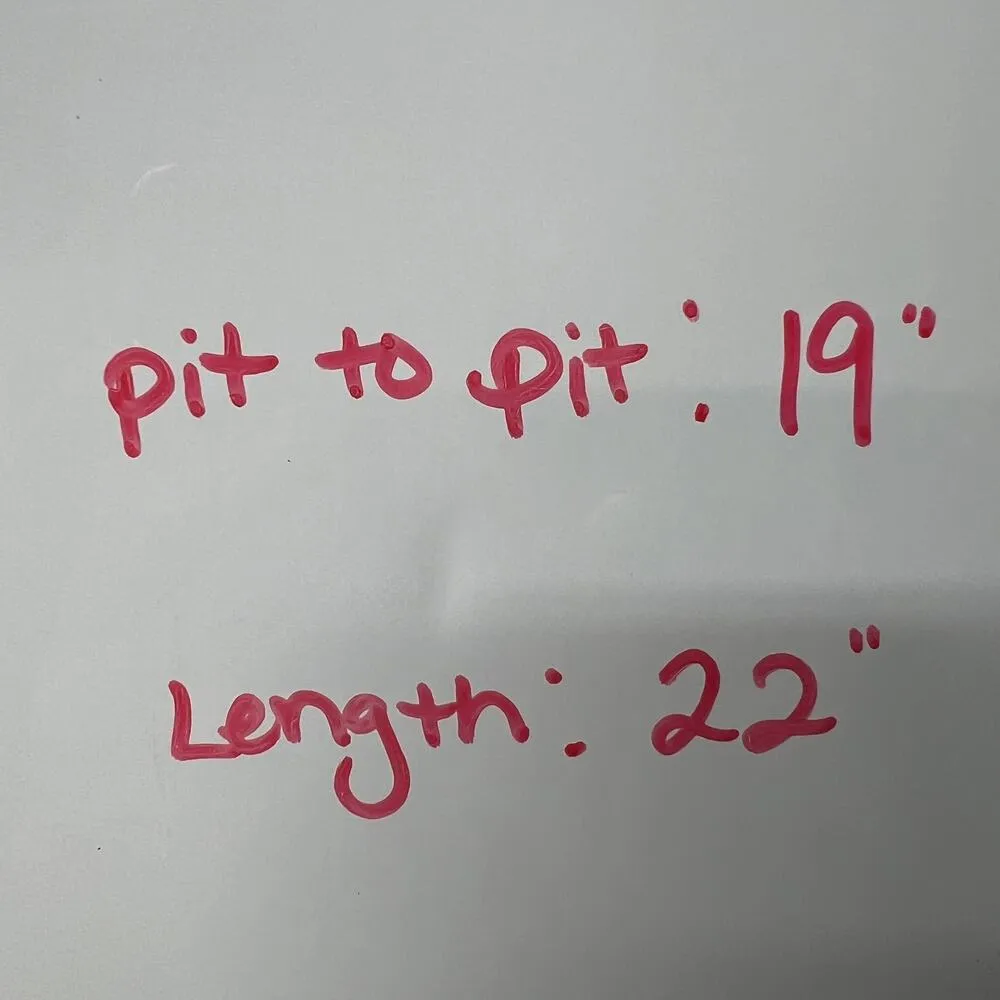 pit to pit : 19"
Length : 22"